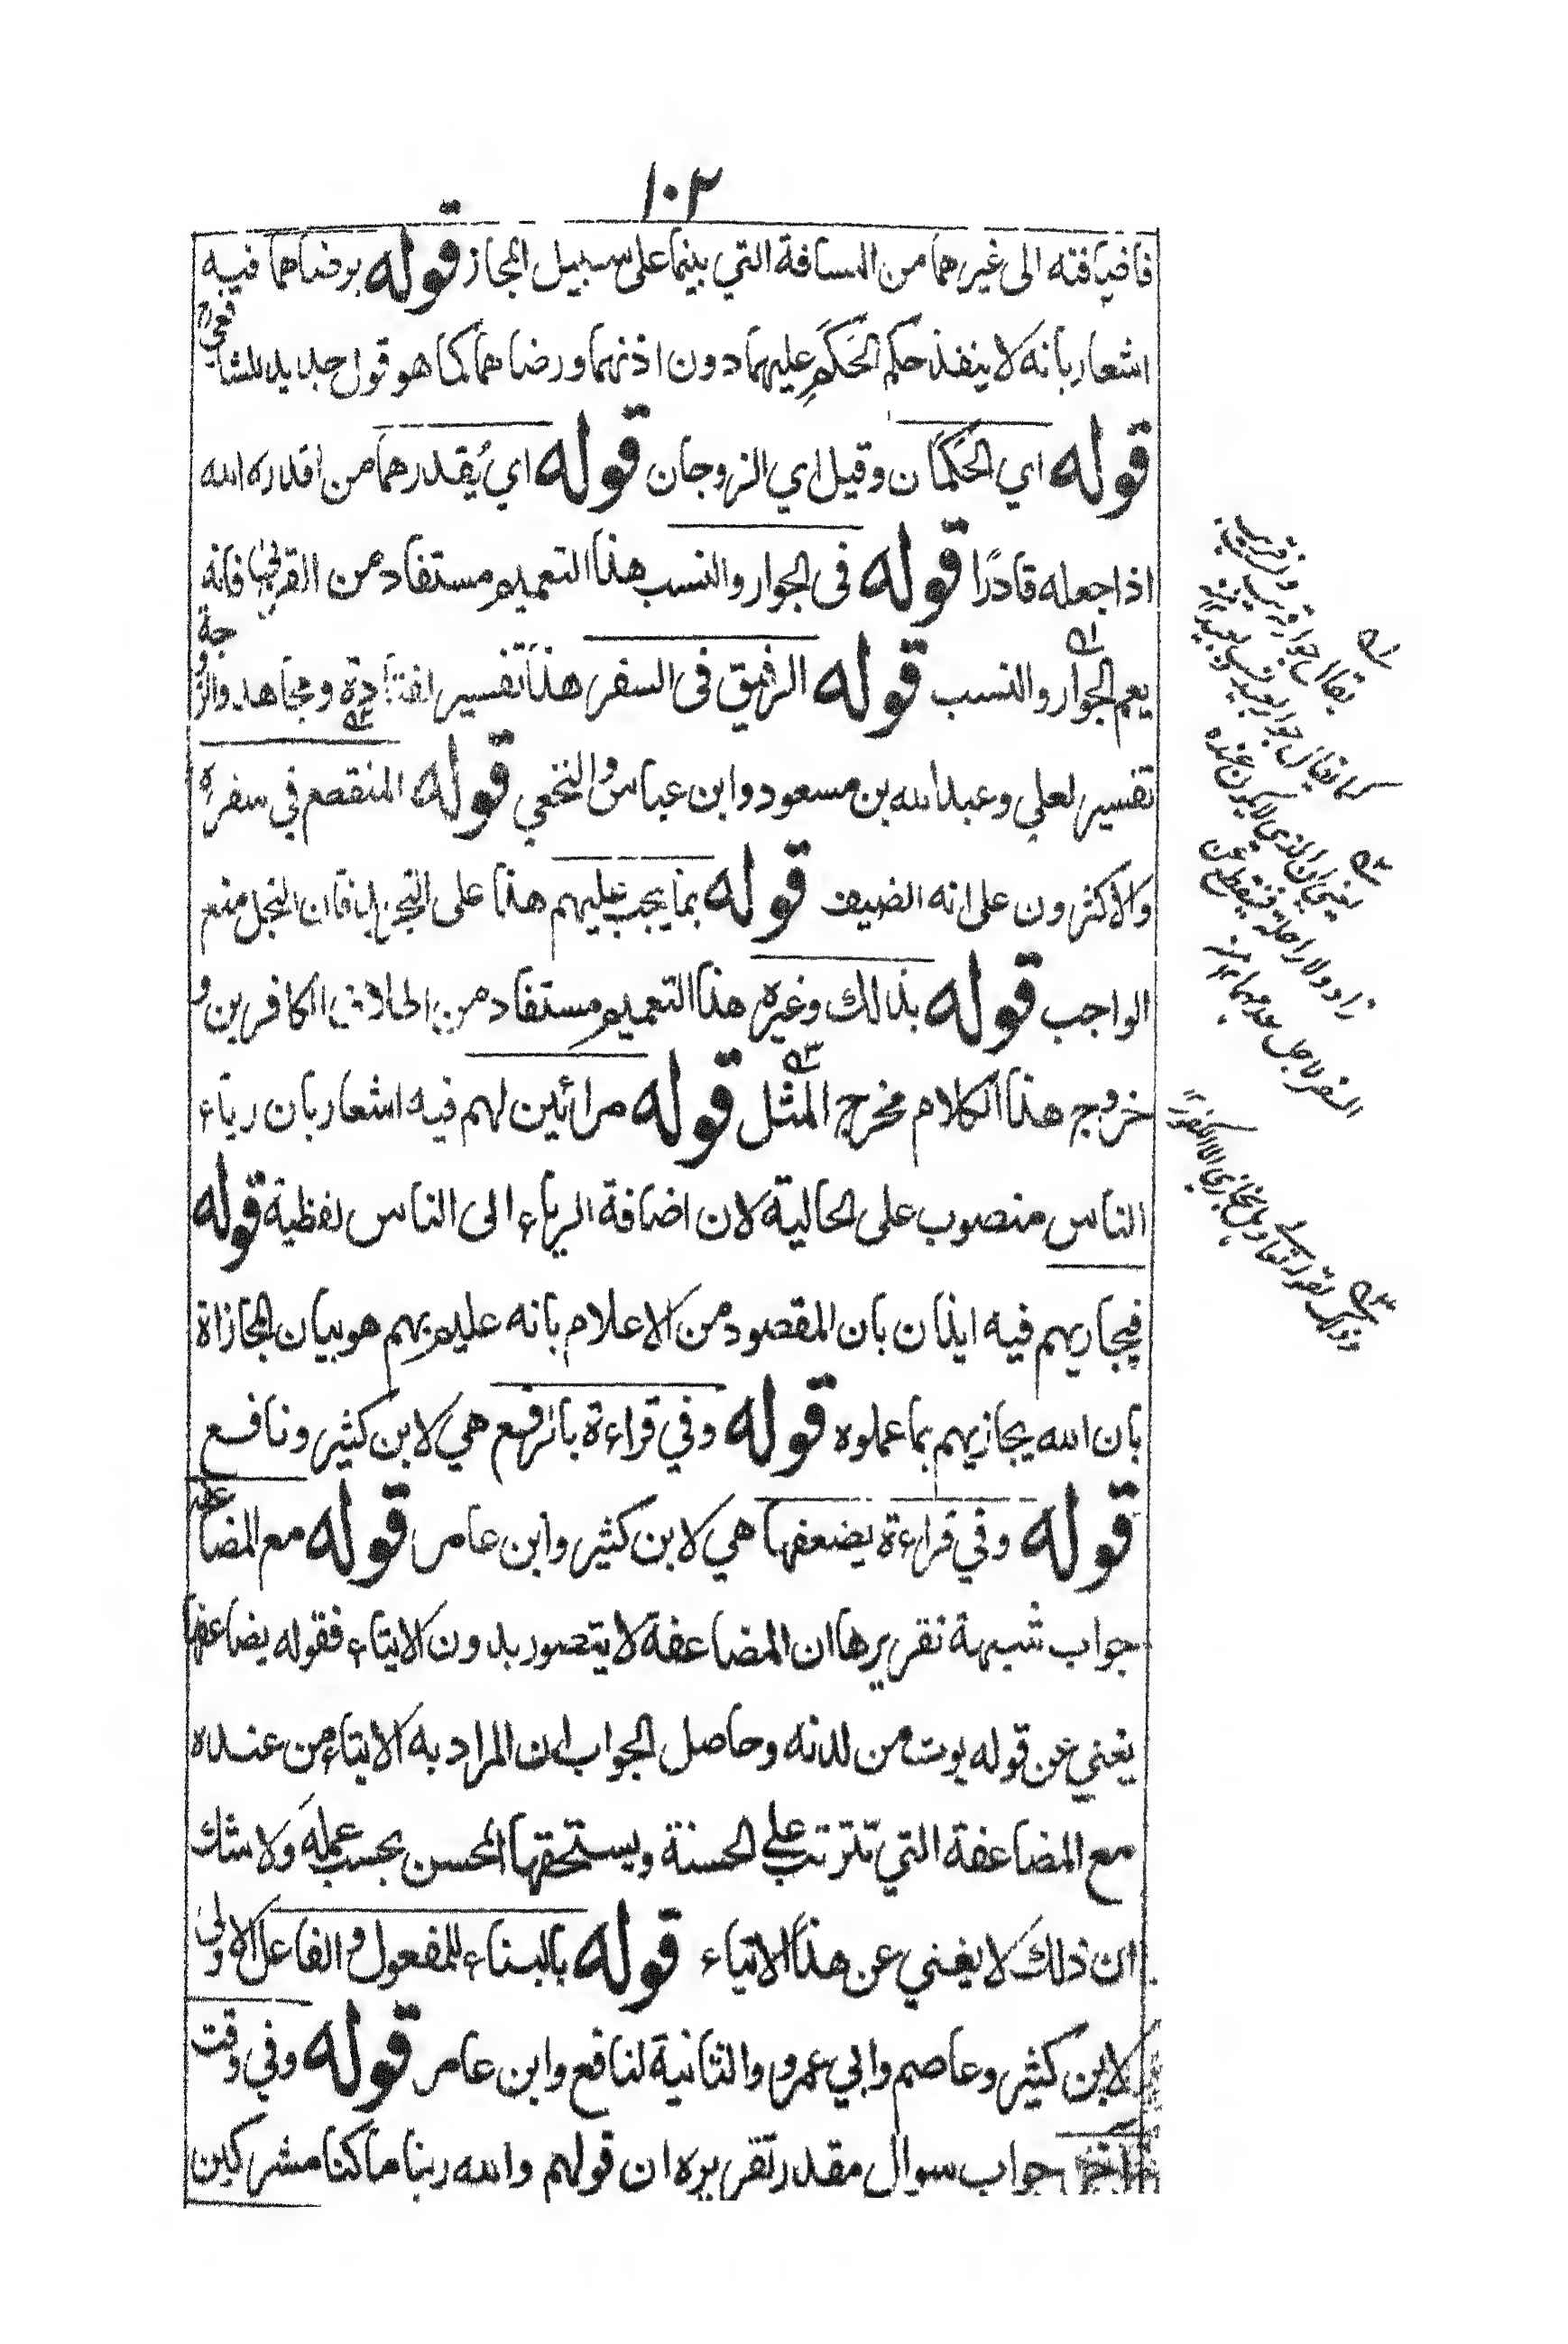 ١٠٢
فاضيافته الى غيرهما من المسافة التي بينهما على سبيل المجاز قوله برضاهما فيه
اشعار بانه لا ينفذ حكم الحَكَمِ عليهما دون اذنهما ورضاهما كما هو قول جديد للشافعي
قوله اي الحَكَمان وقيل اي الزوجان قوله اي يُقدرهما من اقدره الله
اذا جعله قادرًا قوله فى الجوار والنسب هذا التعميم مستفاد من القربى فانه
يعم الجوار والنسب قوله الرفيق فى السفر هذا تفسير لقتادة ومجاهد والزوجة
تفسير لعلي وعبد الله بن مسعود وابن عباس والنخعي قوله المنقطع في سفره
والاكثرون على انه الضيف قوله بما يجب عليهم هذا على التجوز فان البخل منع
الواجب قوله بذالك وغيره هذا التعميم مستفاد من اطلاق الكافرين و
خروج هذا الكلام مخرج المثل قوله مرائين لهم فيه اشعار بان رياء
الناس منصوب على الحالية لان اضافة الرياء الى الناس لفظية قوله
فيجازيهم فيه ايذان بان المقصود من الاعلام بانه عليم بهم هو بيان المجازاة
بان الله يجازيهم بما عملوه قوله وفي قراءة بالرفع هي لابن كثير ونافع
قوله وفي قراءة يضعفها هي لابن كثير وابن عامر قوله مع المضاعفة
جواب شبهة تقريرها ان المضاعفة لا يتصور بدون الايتاء فقوله يضاعفها
يغني عن قوله يوت من لدنه وحاصل الجواب ان المراد به الايتاء من عنده
مع المضاعفة التي تترتب على الحسنة ويستحقها المحسن بحسب عمله ولا شك
ان ذلك لا يغني عن هذا الايتاء قوله بالبناء للمفعول والفاعل الاولى
لابن كثير وعاصم وابي عمرو والثانية لنافع وابن عامر قوله وفي وقت
آخر جواب سوال مقدر تقريره ان قولهم والله ربنا ما كنا مشركين
يقال جوار قريب
كما يقال جوار بعيد
يعني ان الذي لا يكون عنده
زاد ولا راحلة فينقطع عن
السفر لاجل